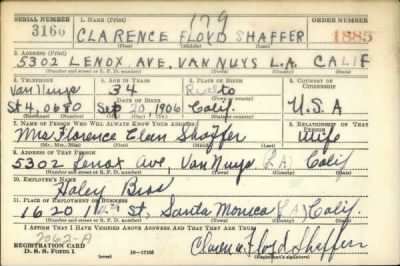 SERIAL NUMBER 1. NAME (Print) 179 ORDER NUMBER
3160 CLARENCE FLOYD SHAFFER 1885
(First) (Middle) (Last)
2. ADDRESS (Print)
5302 LENOX AVE, VAN NUYS L.A. CALIF
(Number and street or R. F. D. number) (Town) (County) (State)
3. TELEPHONE 4. AGE IN YEARS 5. PLACE OF BIRTH 6. COUNTRY OF CITIZENSHIP
Van Nuys 34 Rialto
DATE OF BIRTH (Town or county)
St 4, 0680 Sep 20, 1906 Calif. U.S.A
(Exchange) (Number) (Mo.) (Day) (Yr.) (State or country)
7. NAME OF PERSON WHO WILL ALWAYS KNOW YOUR ADDRESS 8. RELATIONSHIP OF THAT PERSON
Mrs Florence Shaffer wife
(Mr., Mrs., Miss) (First) (Middle) (Last)
9. ADDRESS OF THAT PERSON
5302 Lenox Ave, Van Nuys (LA) Calif
(Number and street or R. F. D. number) (Town) (County) (State)
10. EMPLOYER'S NAME
Haley Bros
11. PLACE OF EMPLOYMENT OR BUSINESS
1620 St, Santa Monica (LA) Calif.
(Number and street or R. F. D. number) (Town) (County) (State)
I AFFIRM THAT I HAVE VERIFIED ABOVE ANSWERS AND THAT THEY ARE TRUE.
2062-A
REGISTRATION CARD
D. S. S. Form 1 16—17105 Clarence Floyd Shaffer
(Registrant's signature)